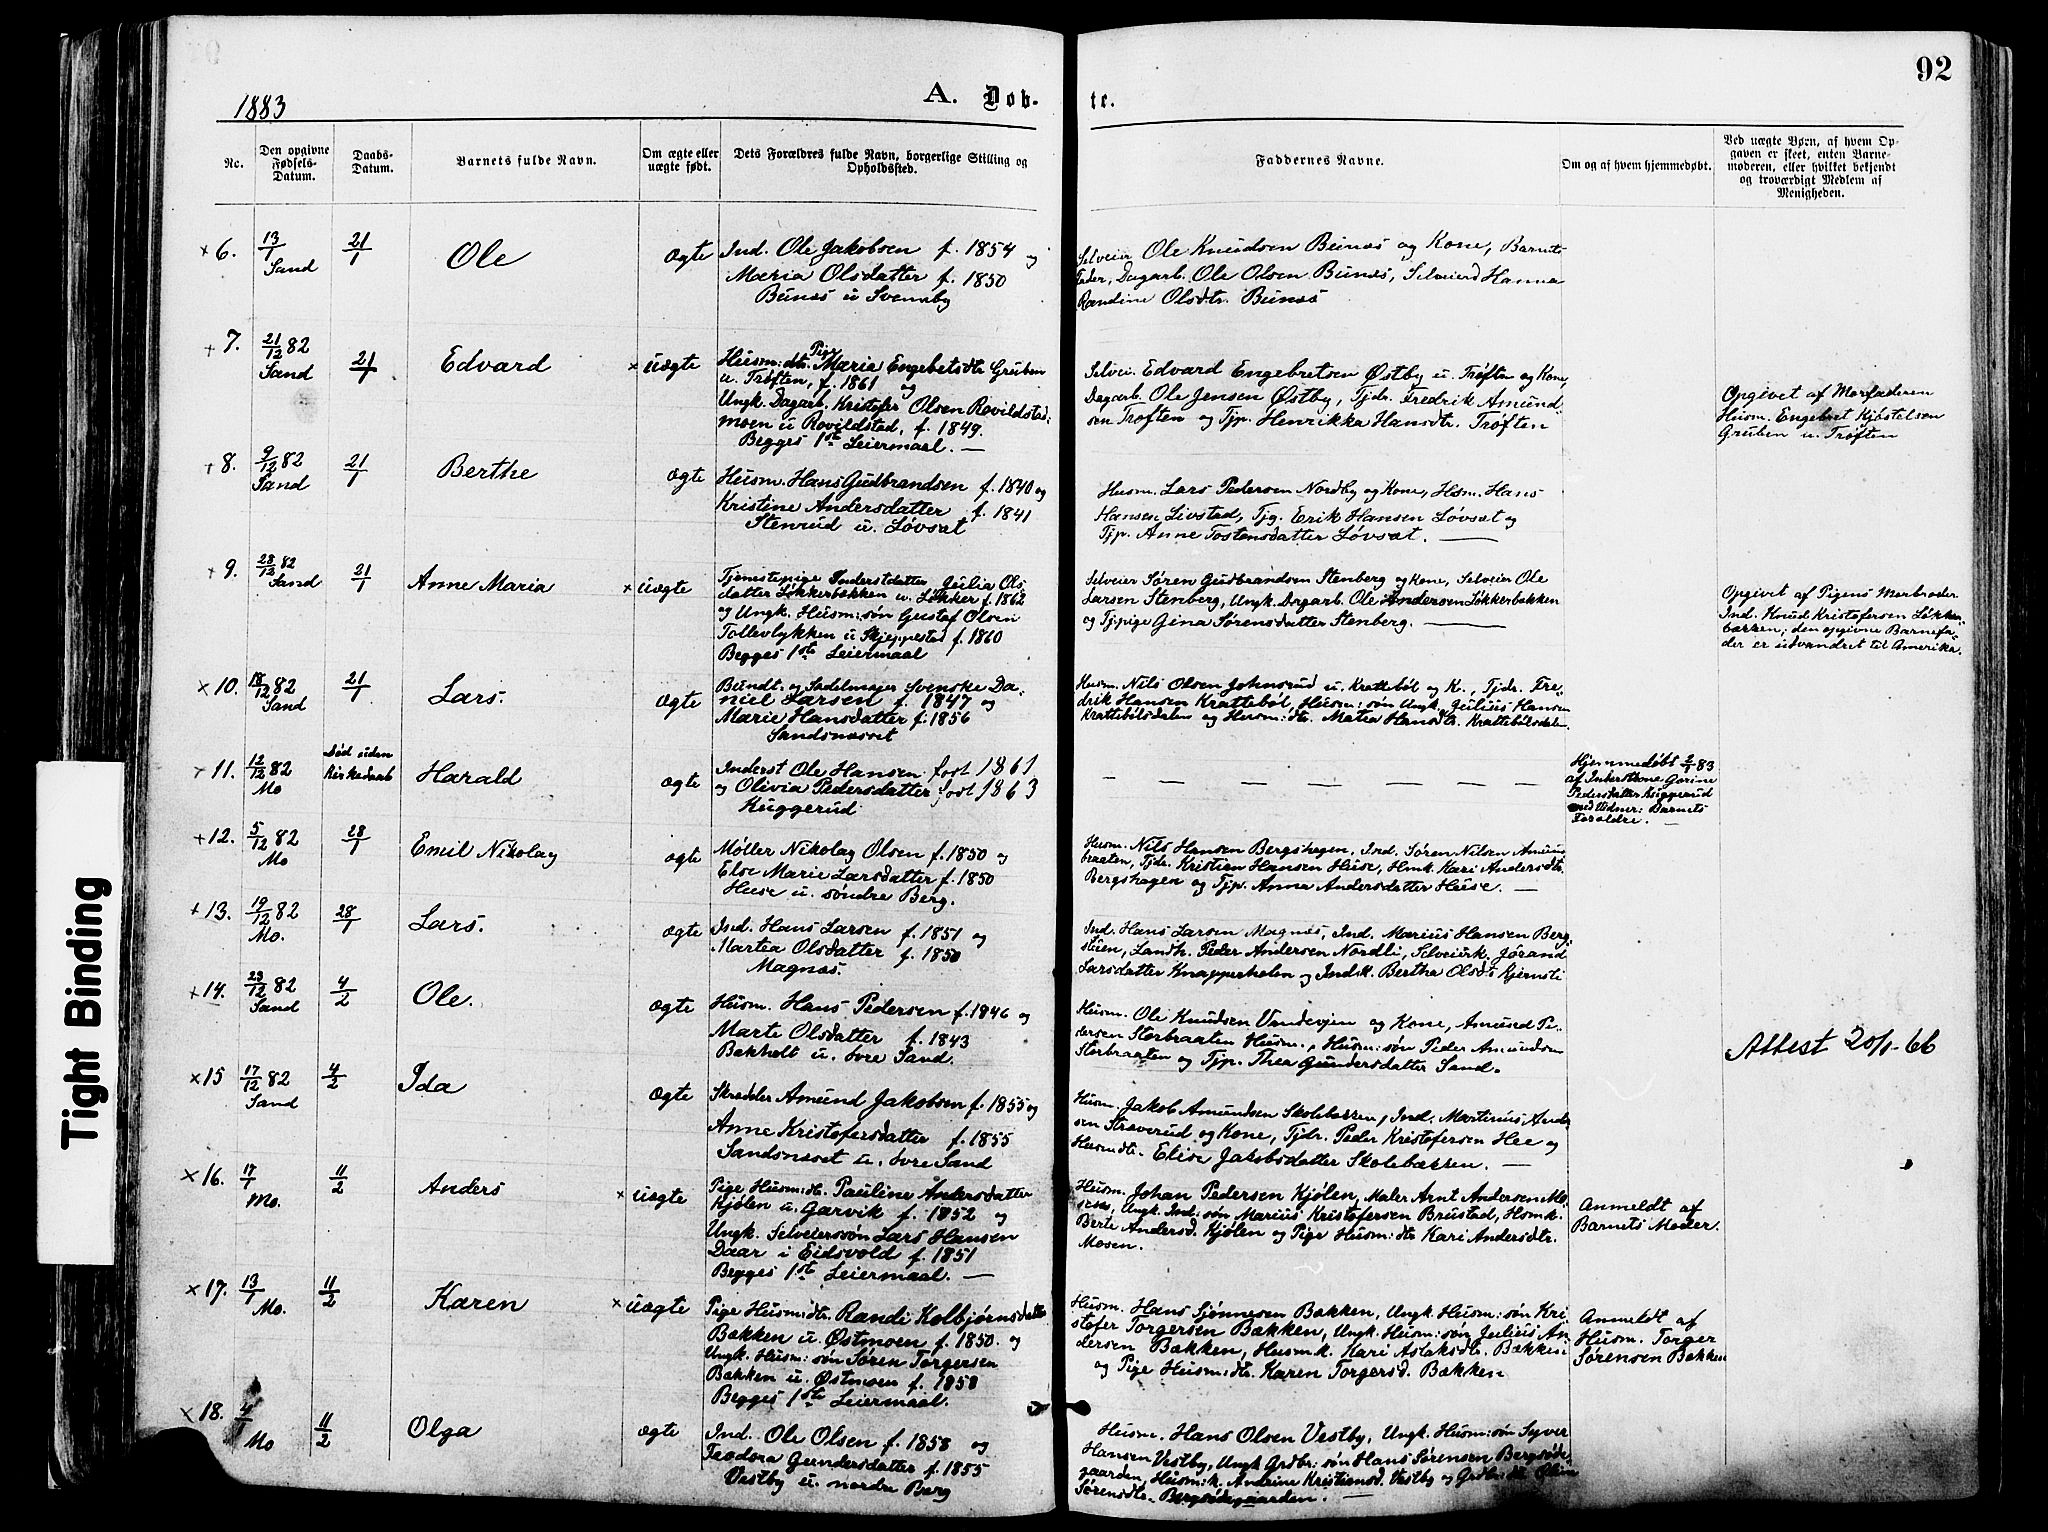 92
1883
A. Døb-
te.
Nc.
Den opgivne Fødsels-Datum.
Daabs-Datum.
Barnets fulde Navn.
Om ægte eller uægte født.
Dets Forældres fulde Navn, borgerlige Stilling og Opholdssted.
Faddernes Navne.
Om og af hvem hjemmedøbt.
Ved uægte Børn, af hvem Op-
gaven er skeet, enten Barne-
moderen, eller hvilket bekjendt
og troværdigt Medlem af
Menigheden.
×6. 13/1 Sand 21/1 Ole ægte
Ind. Ole Jakobsen f. 1854 og
Maria Olsdatter f. 1850
Bunæs u Svennby
Selveier Ole Knudsen Bunæs og Kone, Barnets
Fader, Dagarb. Ole Olsen Bunæs, Selveierd Hanna
Randine Olsdtr. Bunæs
+7. 21/12 82 Sand 21/1 Edvard × uægte
Husm: dtr. Pige Maria Engebretsdtr Gruben
u. Trøften, f. 1861 og
Ungk. Dagarb. Kristofer Olsen Rovildstad-
moen u Rovildstad, f. 1849.
Begges 1ste Leiermaal. —
Selvei. Edvard Engebretsen Østby u. Trøften og Kone,
Dagarb. Ole Jensen Østby, Tjdr. Fredrik Amund-
sen Trøften og Tjp. Henrikka Hansdtr. Trøften
Opgivet af Morfaderen
Husm. Engebret Kjøstelsen
Gruben u. Trøften
+8. 9/12 82 Sand 21/1 Berthe ægte
Husm. Hans Gudbrandsen f. 1840 og
Kristine Andersdatter f. 1841
Stenrud u. Løvsæt
Husm. Lars Pedersen Nordby og Kone, Hsm. Hans
Hansen Livstad, Tjg. Erik Hansen Løvsæt og
Tjp. Anne Tostensdatter Løvsæt. —
+9. 28/12 82 Sand 21/1 Anne Maria × uægte
Tjenestepige Inderstdatter Julia Ols-
datter Løkkerbakken u. Løkker f. 1862
og Ungk. Husm: søn Gustaf Olsen
Tollevlykken u Skjeppestad f. 1860
Begges 1ste Leiermaal
Selveier Søren Gudbrandsen Stenberg og Kone, Selveier Ole
Larsen Stenberg, Ungk. Dagarb. Ole Andersen Løkkerbakken
og Tjpige Gina Sørensdatter Stenberg. —
Opgivet af Pigens Morbroder
Ind. Knud Kristofersen Løkke-
bakken; den opgivne Barnefa-
der er udvandret til Amerika.
×10. 18/12 82 Sand 21/1 Lars. ægte
Bundt. og Sadelmager Svenske Da-
niel Larsen f. 1847 og
Marie Hansdatter f. 1856
Sandsnæsset
Husm. Nils Olsen Johnsrud u. Krattebøl og K., Tjdr. Fre-
drik Hansen Krattebøl, Husm: søn Ungk. Julius Hansen
Krattebølsdalen og Husm: dtr. Matea Hansdtr. Krattebølsdalen
+11. 12/12 82 Mo Død uden Kirkedaab Harald ægte
Inderst Ole Hansen født 1861
og Olivia Pedersdatter født 1863
Kuggerud
— — — — — — —
Hjemmedøbt 2/1 83
af Inderstkone Gorine
Pedersdatter Kuggerud
med Vidner: Barnets
Forældre. —
+12. 5/12 82 Mo 28/1 Emil Nikolay ægte
Møller Nikolay Olsen f. 1850 og
Else Marie Larsdatter f. 1850
Huse u. søndre Berg.
Husm. Nils Hansen Bergshagen, Ind. Søren Nilsen Amund-
braaten, Tjdr. Kristian Hansen Huse, Hmk. Kari Andersdtr.
Bergshagen og Tjp. Anna Andersdatter Huse. —
+13. 19/12 82 Mo. 28/1 Lars. ægte
Ind. Hans Larsen f. 1851 og
Martea Olsdatter f. 1850
Magnæs.
Ind. Hans Larsen Magnæs, Ind. Marius Hansen Berg-
stuen, Landh. Peder Andersen Nordli, Selveierk. Jørand
Larsdatter Knapperholen og Indk. Bertha Olsdtr Kjernsli
+14. 23/12 82 Sand 4/2 Ole. ægte
Husm. Hans Pedersen f. 1846 og
Marte Olsdatter f. 1843
Bækholt u. øvre Sand.
Husm. Ole Knudsen Vandevjen og Kone, Amund Pe-
dersen Storbraaten Husm., Husm: søn Peder Amundsen
Storbraaten og Tjp. Thea Gundersdatter Sand.
Attest 20/1-66
×15 17/12 82 Sand 4/2 Ida ægte
Skrædder Amund Jakobsen f. 1855 og
Anne Kristofersdatter f. 1855
Sandsnæsset u. øvre Sand
Husm. Jakob Amundsen Skolebakken, Ind. Martinius Ander-
sen Straverud og Kone, Tjdr. Peder Kristofersen Hee og
Husmdtr. Elise Jakobsdatter Skolebakken. —
×16. 17/1 Mo. 11/2 Anders × uægte
Pige Husm: dtr. Pauline Andersdatter
Kjølen u. Garvik f. 1852 og
Ungk. Selveierssøn Lars Hansen
Daar i Eidsvold f. 1851
Begges 1ste Leiermaal. —
Husm. Johan Pedersen Kjølen, Maler Arnt Andersen Mo-
sen, Ungk. Ind: søn Marius Kristofersen Brustad, Hsmk.
Berte Andersd. Kjølen og Pige Husm: dtr Kari Andersdtr.
Mosen.
Anmeldt af
Barnets Moder.
×17. 13/1 Mo. 11/2 Karen × uægte
Pige Husm: dtr. Randi Kolbjørnsdatter
Bakken u. Østmoen f. 1850. og
Ungk. Husm: søn Søren Torgersen
Bakken u. Østmoen f. 1858
Begges 1ste Leiermaal.
Husm. Hans Sjønnesen Bakken, Ungk. Husm: søn Kri-
stofer Torgersen Bakken, Ungk. Husm: søn Julius An-
dersen Bakken, Husm.k. Kari Aslaksdtr. Bakken
og Pige Husm: dtr. Karen Torgersd. Bakken
Anmeldt af
Husm. Torger
Sørensen Bakken
×18. 4/1 Mo 11/2 Olga ægte
Ind. Ole Olsen f. 1858 og
Teodora Gundersdatter f. 1855
Vestby u. nordre Berg
Husm. Hans Olsen Vestby, Ungk. Husm: søn Syver
Hansen Vestby, Ungk Grdbr: søn Hans Sørensen Bergsøde-
gaarden, Husm: k. Andrine Kristiansd. Vestby og Grdbr: dtr
Sørensdtr. Bergsødegaarden. —
Tight Binding